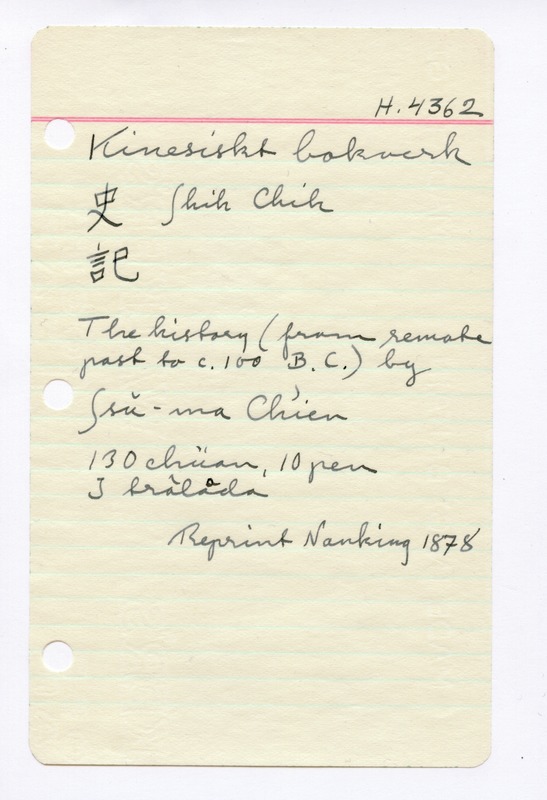 H. 4362
Kinesiskt bokverk
史 Shih Chih
記
The history (from remote
past to c. 100 B.C.) by
Ssŭ-ma Ch'ien
130 chüan, 10 pen
I trälåda
Reprint Nanking 1878